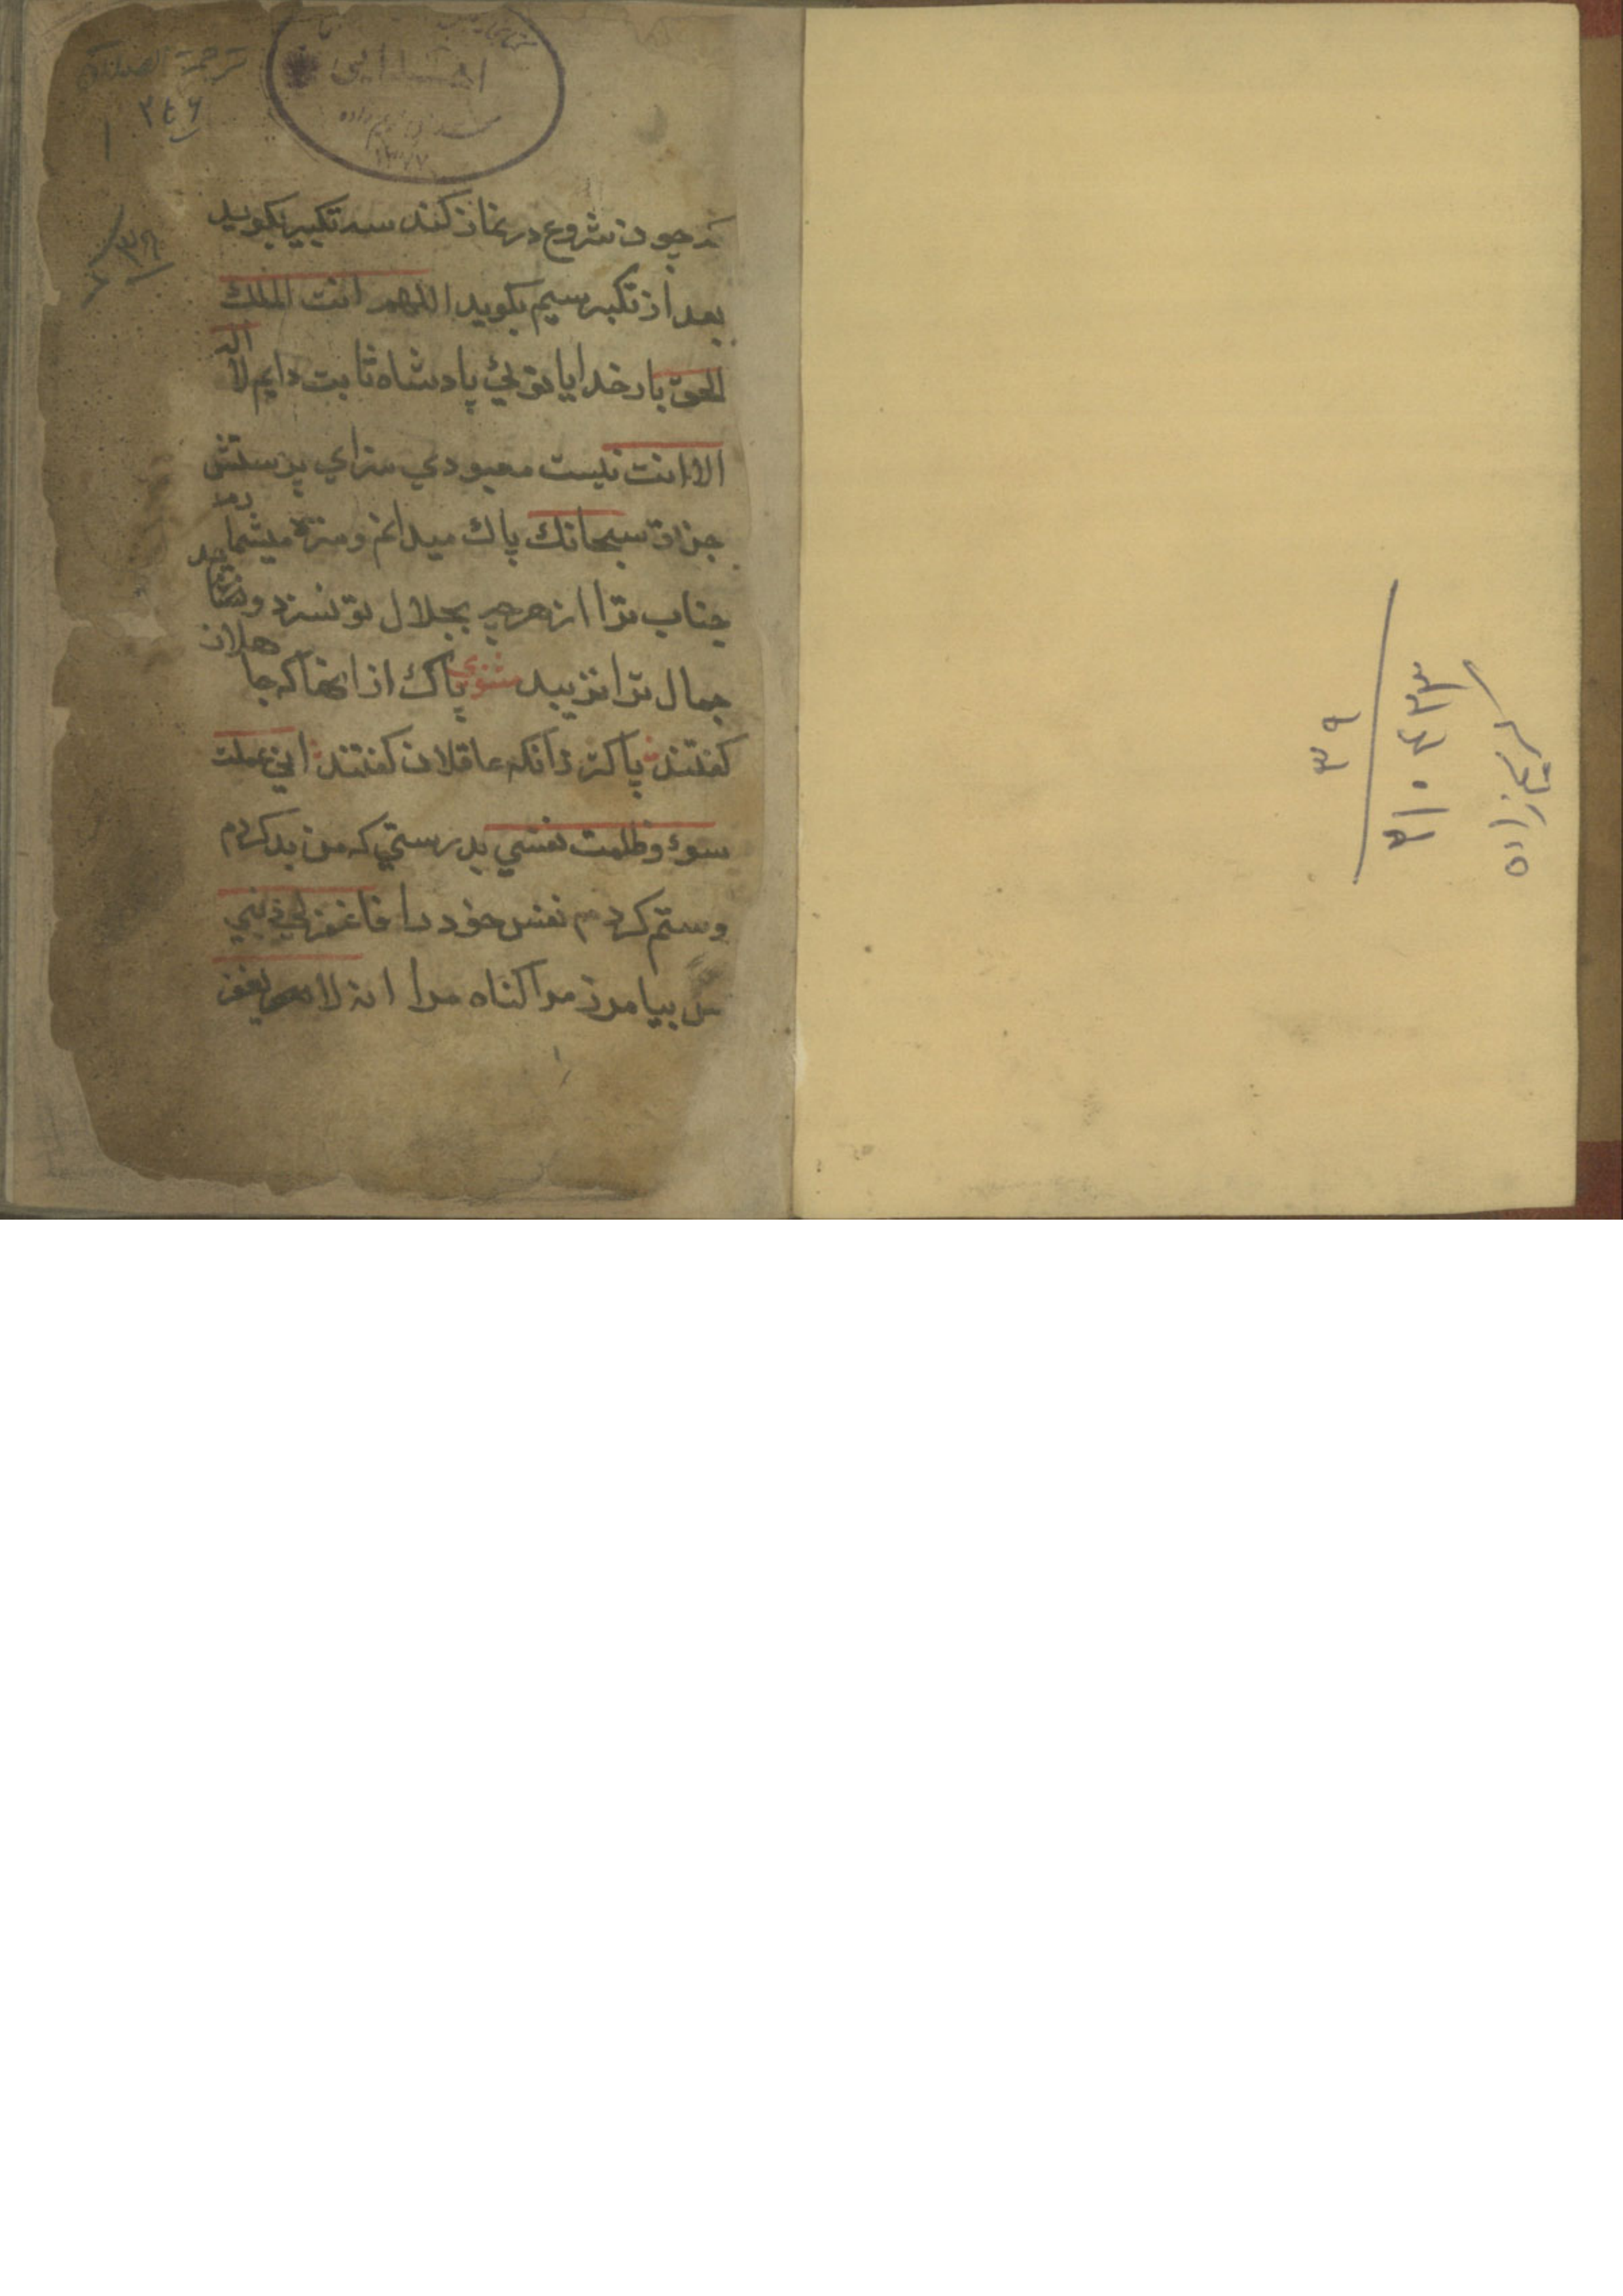 کریم‌زاده
۳۱۰۴۳۳
۳۹
ترجمة الصلوة
۲۴۶
۱
اهدائی
۳۹
که چون شروع در نماز کند سه تکبیر بکوید
بعد از تکبیر سیم بکوید اللهم انت الملک
الحق بار خدایا توئی پادشاه ثابت دایم لا اله
الا انت نیست معبودی سزای پرستش
جز تو سبحانک پاک میدانم و منزه میشمارم
جناب ترا از هر چه بجلال تو نسزد و
جمال ترا نزیبد مثنوی پاک از آنها که جاهلان
کفتند پاکتر زانکه عاقلان کفتند انی عملت
سوء و ظلمت نفسی بدرستی که من بد کردم
و ستم کردم نفس خود را فاغفر لی ذنبی
بیامرز مرا کناه مرا انه لا یغفر